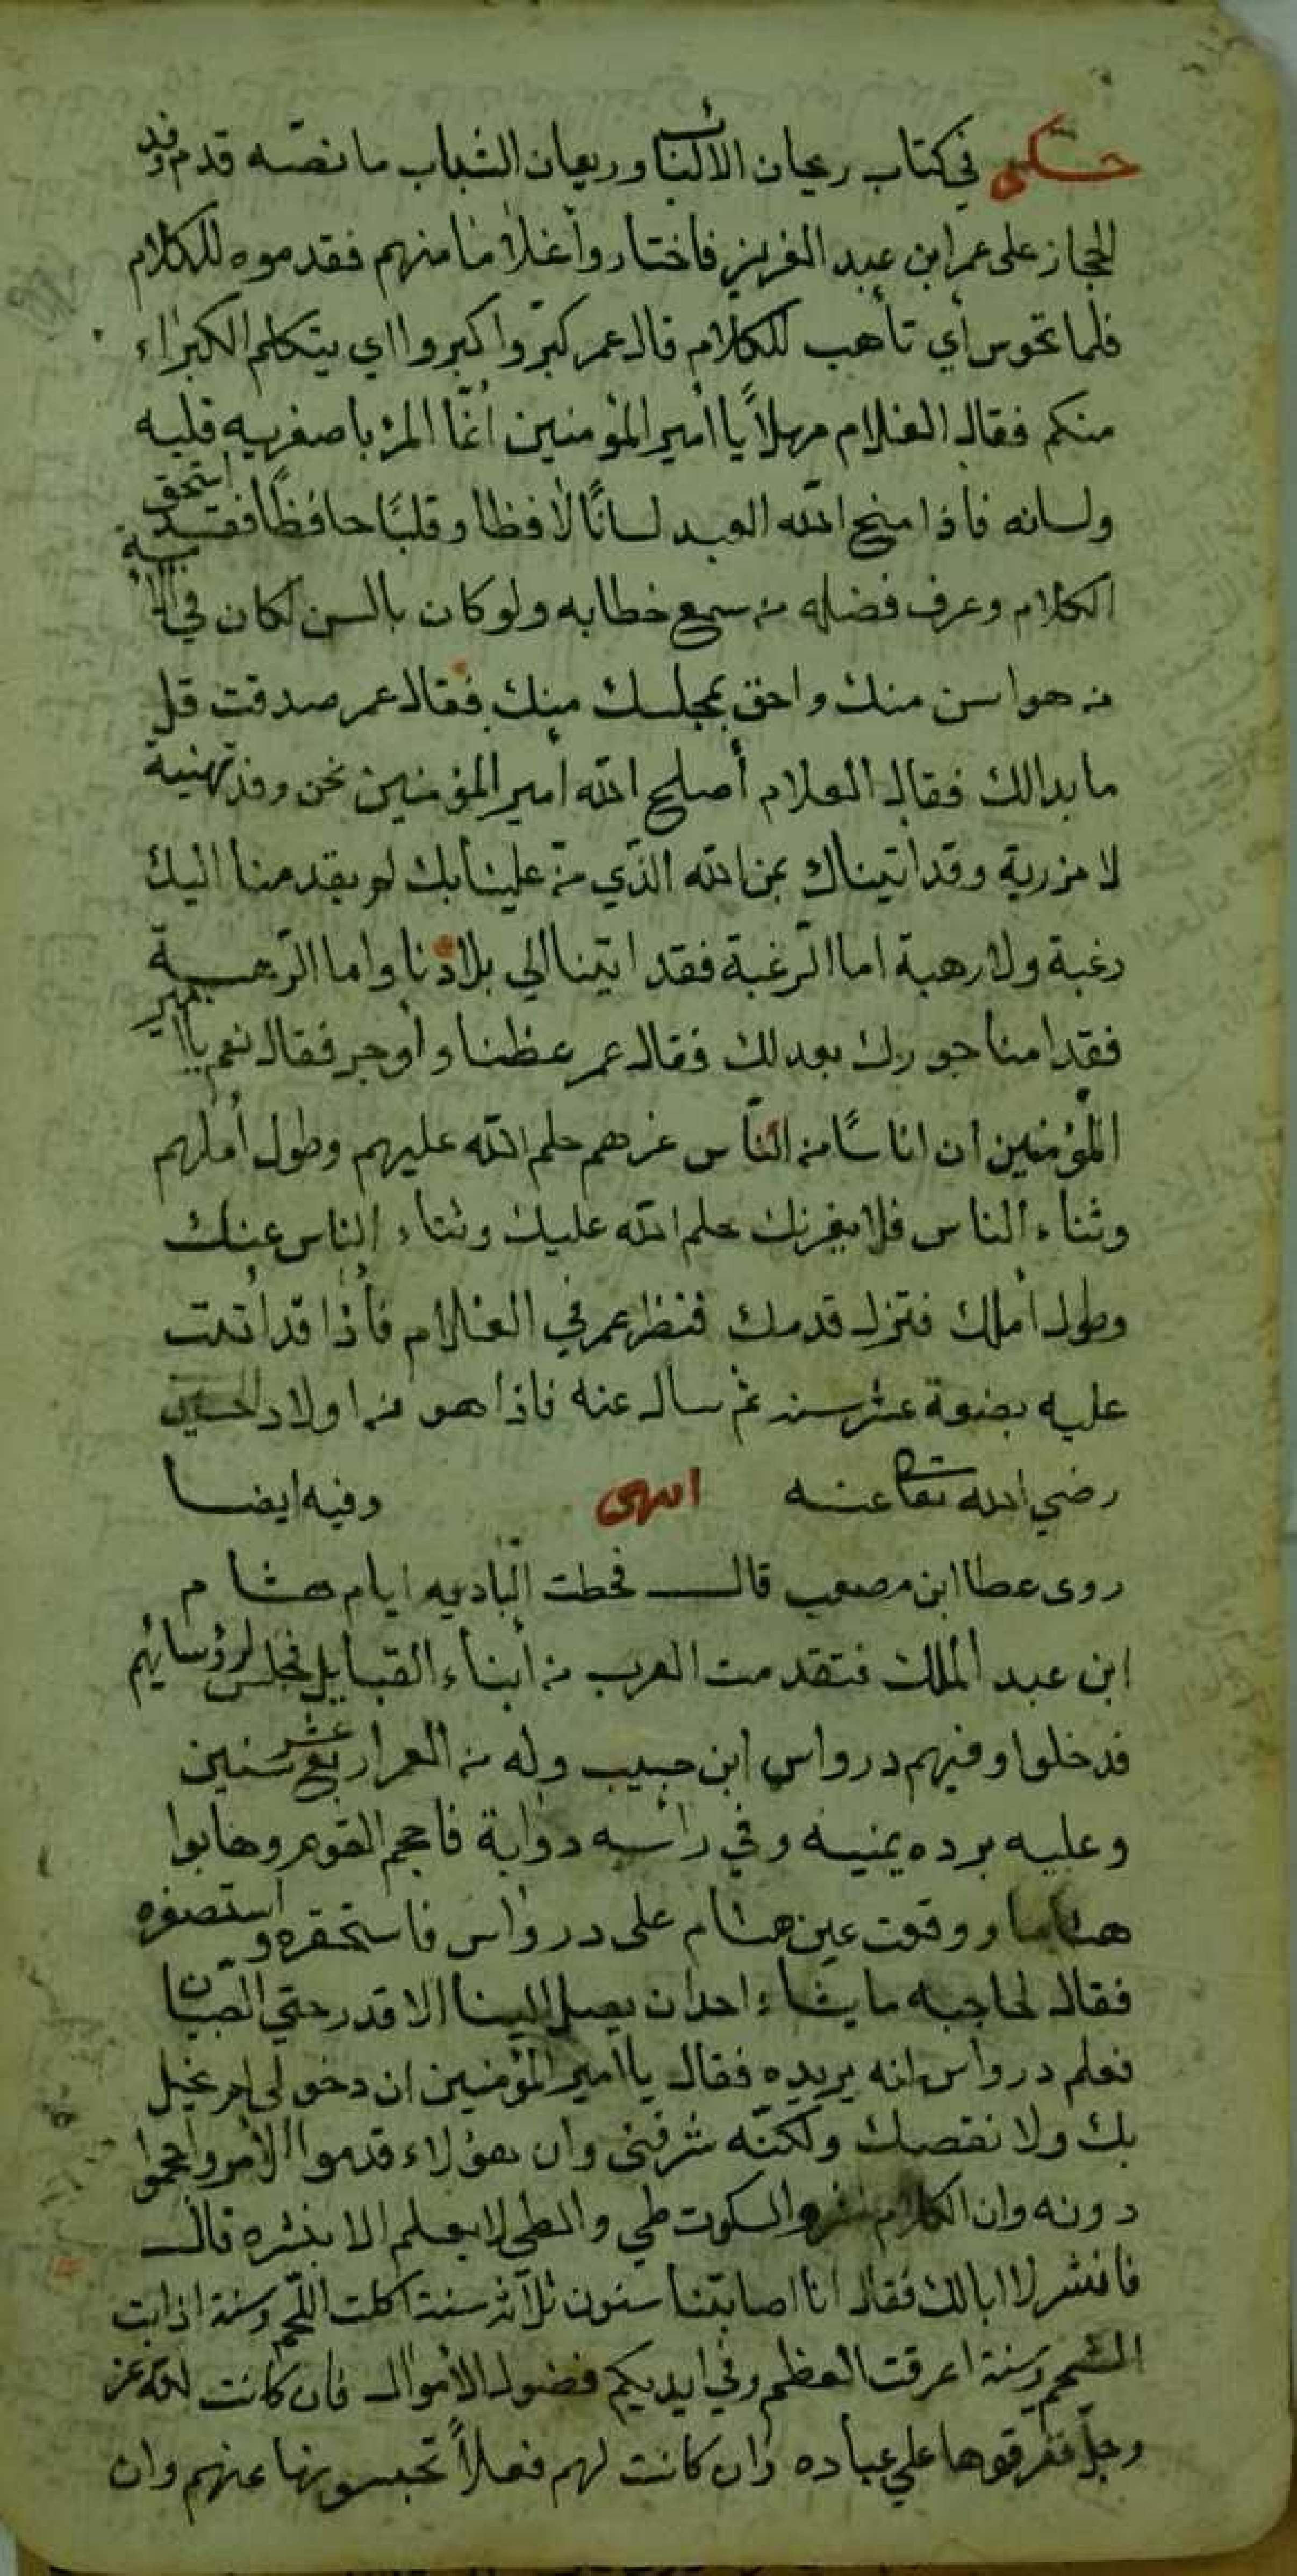 حكى في كتاب ريحان الالباب وريعان الشباب ما نصّه قدم وفد
الحجاز على عمر ابن عبد العزيز فاختاروا غلاما منهم فقدموه للكلام
فلما تحوس أي تأهب للكلام قال عمر كبّروا كبروا اي يتكلم الكبراء
منكم فقال الغلام مهلاً يا امير المؤمنين انما المرْ باصغريه قلبه
ولسانه فاذا منح الله العبد لسانًا لافظا وقلبًا حافظًا فقد استحق
الكلام وعرف فضله من سمع خطابه ولو كان بالسن لكان في
من هو اسن منك واحق بمجلسك منك فقال عمر صدقت قل
ما بدالك فقال الغلام أصلح الله أمير المؤمنين نحن وفد تهنية
لا مزرية وقد اتيناك بمن الله الذي من علينا بك لم يقدمنا اليك
رغبة ولا رهبة اما الرّغبة فقد اتينا الي بلادنا واما الرّهبة
فقد امنا جورك بعدلك فقال عمر عظنا وأوجز فقال نعم يا امير
المؤمنين ان اناسًا من الناس غرهم حلم الله عليهم وطول أملهم
وثناء الناس فلا يغرنك حلم الله عليك وثناء الناس عنك
وطول أملك فتزل قدمك فنظر عمر في الغلام فأذا قد أتت
عليه بضعة عشر سنه ثم سال عنه فاذا هو من اولاد الحسين
رضي الله تعا عنه انتهى وفيه ايضا
روى عطا ابن مصعب قال قحطت البادية ايام هشام
ابن عبد الملك فتقدمت العرب من أبناء القبايل فجلس لرؤسائهم
فدخلوا وفيهم درواس ابن حبيب وله من العمر اربع عشر سنين
وعليه برده يمنيه وفي رأسه دوابة فاحجم القوم وهابوا
هشاما ووقعت عين هشام على درواس فاستحقره واستصغره
فقال لحاجبه ما يشاء احد ان يصل الينا الا قدر حتي الصبيان
فعلم درواس انه يريده فقال يا امير المؤمنين ان دخولي لم يخل
بك ولا نقصك ولكنّه شرفني وان هؤلاء قدموا لامر واحجموا
دونه وان الكلام نشر والسكوت طي والطي لا يعلم الا بنشره قال
فانشر لا ابا لك فقال انا اصابتنا سنون ثلاثه سنة اكلت اللحم وسنة اذابت
الشحم وسنة اعرقت العظم وفي ايديكم فضول الاموال فان كانت لله عز
وجلّ ففرقوها علي عباده وان كانت لهم فعلاً تحبسونها عنهم وان